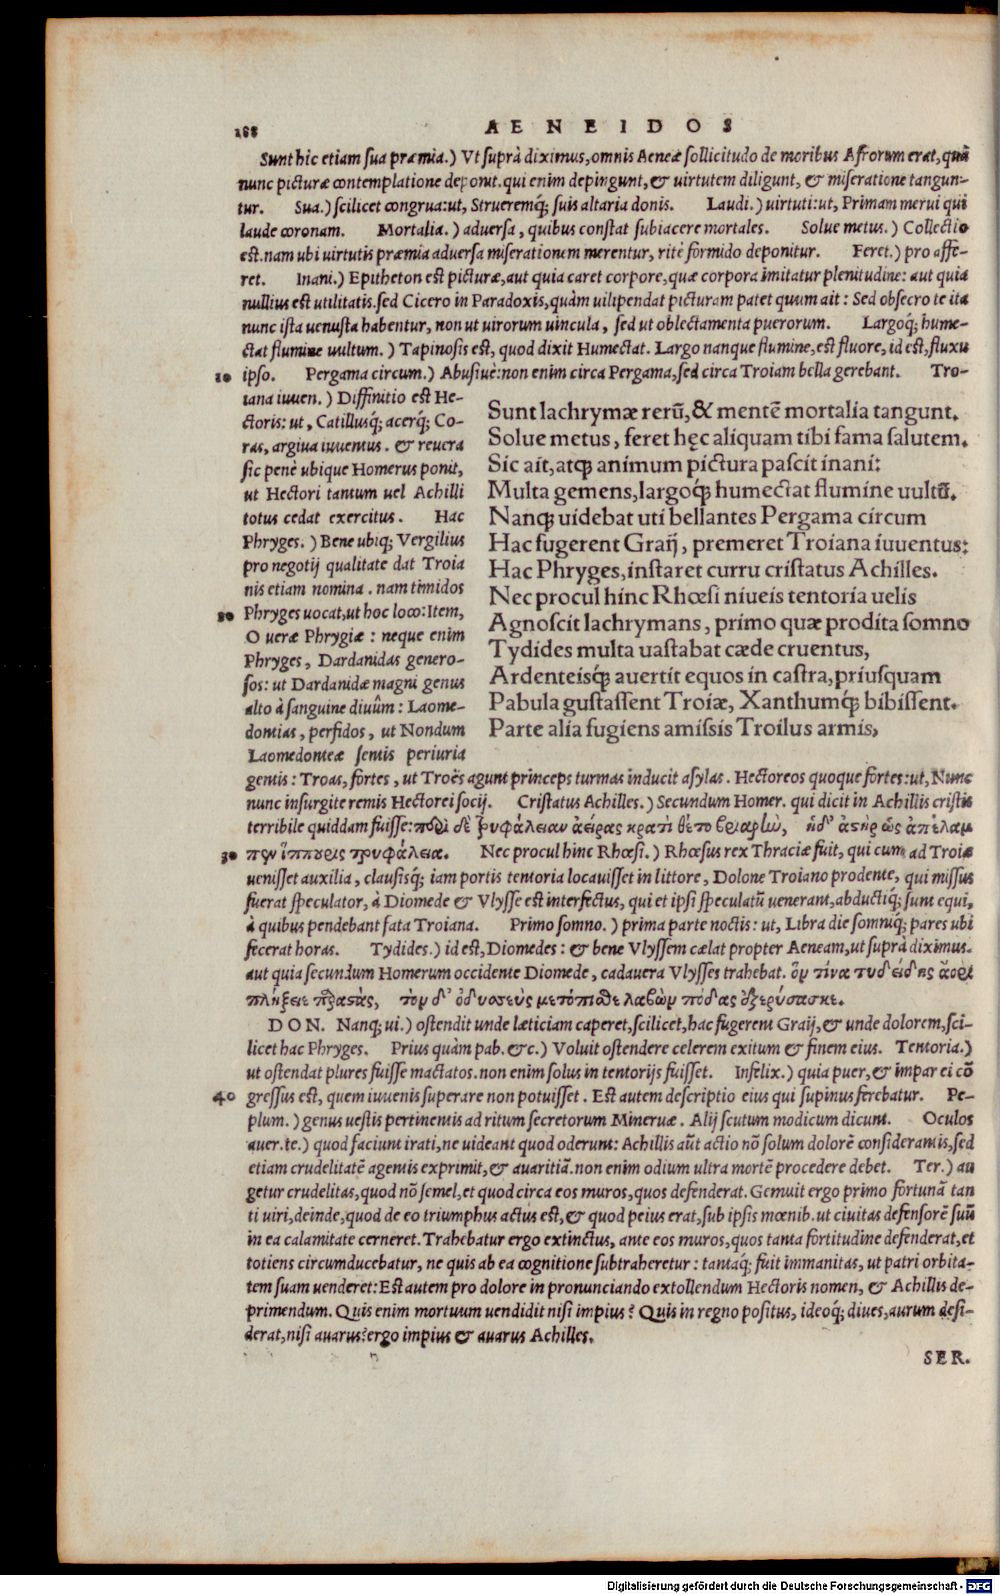 188 AENEIDOS
Sunt hic etiam sua præmia.) Vt suprà diximus, omnis Aeneæ sollicitudo de moribus Afrorum erat, quã
nunc picturæ contemplatione deponit. qui enim depingunt, & uirtutem diligunt, & miseratione tangun-
tur. Sua.) scilicet congrua: ut, Strueremq; suis altaria donis. Laudi.) uirtuti: ut, Primam merui qui
laude coronam. Mortalia.) aduersa, quibus constat subiacere mortales. Solue metus.) Collectio
est. nam ubi uirtutis præmia aduersa miserationem merentur, ritè formido deponitur. Feret.) pro affe-
ret. Inani.) Epitheton est picturæ, aut quia caret corpore, quæ corpora imitatur plenitudine: aut quia
nullius est utilitatis. sed Cicero in Paradoxis, quàm uilipendat picturam patet quum ait: Sed obsecro te ita
nunc ista uenusta habentur, non ut uirorum uincula, sed ut oblectamenta puerorum. Largoq́; hume-
ctat flumine uultum.) Tapinosis est, quod dixit Humectat. Largo nanque flumine, est fluore, id est, fluxu
10 ipso. Pergama circum.) Abusiuè: non enim circa Pergama, sed circa Troiam bella gerebant. Tro-
iana iuuen.) Diffinitio est He-
ctoris: ut, Catillusq́; acerq́; Co-
ras, argiua iuuentus. & reuera
sic penè ubique Homerus ponit,
ut Hectori tantum uel Achilli
totus cedat exercitus. Hac
Phryges.) Bene ubiq; Vergilius
pro negotij qualitate dat Troia
nis etiam nomina. nam timidos
20 Phryges uocat, ut hoc loco: Item,
O ueræ Phrygiæ: neque enim
Phryges, Dardanidas genero-
sos: ut Dardanidæ magni genus
alto à sanguine diuûm: Laome-
dontias, perfidos, ut Nondum
Laomedonteæ sentis periuria
Sunt lachrymæ rerũ, & mentẽ mortalia tangunt.
Solue metus, feret hęc aliquam tibi fama salutem.
Sic ait, atq; animum pictura pascit inani:
Multa gemens, largoq́; humectat flumine uultũ.
Nanq; uidebat uti bellantes Pergama circum
Hac fugerent Graij, premeret Troiana iuuentus:
Hac Phryges, instaret curru cristatus Achilles.
Nec procul hinc Rhœsi niueis tentoria uelis
Agnoscit lachrymans, primo quæ prodita somno
Tydides multa uastabat cæde cruentus,
Ardenteisq́; auertit equos in castra, priusquam
Pabula gustassent Troiæ, Xanthumq́; bibissent.
Parte alia fugiens amissis Troilus armis,
gentis: Troas, fortes, ut Troës agunt princeps turmas inducit asylas. Hectoreos quoque fortes: ut, Nunc
nunc insurgite remis Hectorei socij. Cristatus Achilles.) Secundum Homer. qui dicit in Achillis cristis
terribile quiddam fuisse: δὲ τρυφάλειαν ἀείρας κρατὶ θέτο βριαρὴν, ἡδ' ἀστὴρ ὣς ἀπέλαμ
30 πεν ἵππουρις τρυφάλεια. Nec procul hinc Rhœsi.) Rhœsus rex Thraciæ fuit, qui cum ad Troiæ
uenisset auxilia, clausisq́; iam portis tentoria locauisset in littore, Dolone Troiano prodente, qui missus
fuerat speculator, à Diomede & Vlysse est interfectus, qui et ipsi speculatũ uenerant, abductiq́; sunt equi,
à quibus pendebant fata Troiana. Primo somno.) prima parte noctis: ut, Libra die somniq́; pares ubi
fecerat horas. Tydides.) id est, Diomedes: & bene Vlyssem cælat propter Aeneam, ut suprà diximus.
aut quia secundum Homerum occidente Diomede, cadauera Vlysses trahebat. ὅν τίνα τυδείδης ἄορι
πλήξειε παραστὰς, τὸν δ' ὀδυσσεὺς μετόπισθε λαβὼν πόδας ἐξερύσασκε.
DON. Nanq; ui.) ostendit unde lætitiam caperet, scilicet, hac fugerent Graij, & unde dolorem, sci-
licet hac Phryges. Prius quàm pab. &c.) Voluit ostendere celerem exitum & finem eius. Tentoria.)
ut ostendat plures fuisse mactatos. non enim solus in tentorijs fuisset. Infelix.) quia puer, & impar ei cõ
40 gressus est, quem iuuenis superare non potuisset. Est autem descriptio eius qui supinus ferebatur. Pe-
plum.) genus uestis pertinentis ad ritum secretorum Mineruæ. Alij scutum modicum dicunt. Oculos
auer. te.) quod faciunt irati, ne uideant quod oderunt: Achillis aũt actio nõ solum dolorẽ considerantis, sed
etiam crudelitatẽ agentis exprimit, & auaritiã. non enim odium ultra mortẽ procedere debet. Ter.) au
getur crudelitas, quod nõ semel, et quod circa eos muros, quos defenderat. Gemuit ergo primo fortunã tan
ti uiri, deinde, quod de eo triumphus actus est, & quod peius erat, sub ipsis mœnib. ut ciuitas defensorẽ suũ
in ea calamitate cerneret. Trahebatur ergo extinctus, ante eos muros, quos tanta fortitudine defenderat, et
totiens circumducebatur, ne quis ab ea cognitione subtraheretur: tantaq́; fuit immanitas, ut patri orbita-
tem suam uenderet: Est autem pro dolore in pronunciando extollendum Hectoris nomen, & Achillis de-
primendum. Quis enim mortuum uendidit nisi impius? Quis in regno positus, ideoq́; diues, aurum desi-
derat, nisi auarus? ergo impius & auarus Achilles.
SER.
Digitalisierung gefördert durch die Deutsche Forschungsgemeinschaft - DFG